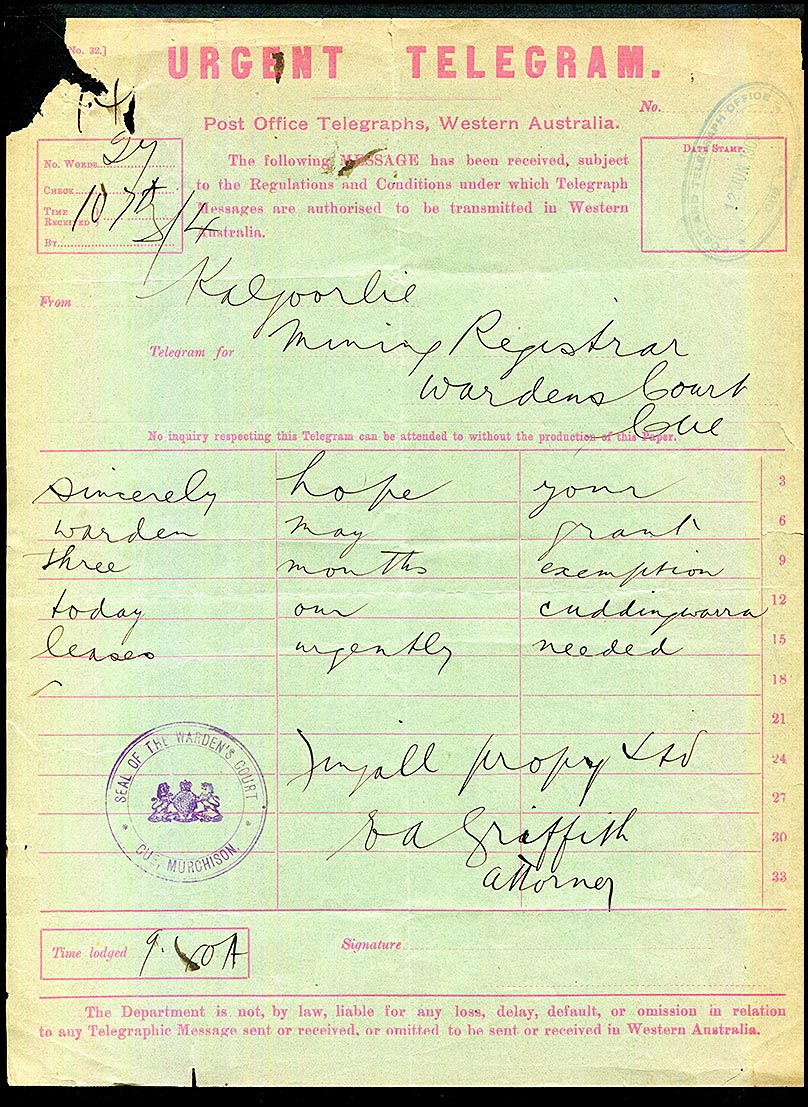 No. 32.]
URGENT TELEGRAM.
No.
Post Office Telegraphs, Western Australia.
No. Words 27
Check
Time Received
By
The following MESSAGE has been received, subject
to the Regulations and Conditions under which Telegraph
Messages are authorised to be transmitted in Western
Australia.
Date Stamp.
POST AND TELEGRAPH OFFICE
12 JUN
From Kalgoorlie
Telegram for Mining Registrar
Wardens Court
Cue
No inquiry respecting this Telegram can be attended to without the production of this Paper.
sincerely hope your 3
warden may grant 6
three months exemption 9
today our cuddingwarra 12
leases urgently needed 15
18
21
propy Ltd 24
27
E A Griffith 30
attorney 33
SEAL OF THE WARDEN'S COURT
CUE, MURCHISON.
Time lodged
Signature
The Department is not, by law, liable for any loss, delay, default, or omission in relation
to any Telegraphic Message sent or received, or omitted to be sent or received in Western Australia.